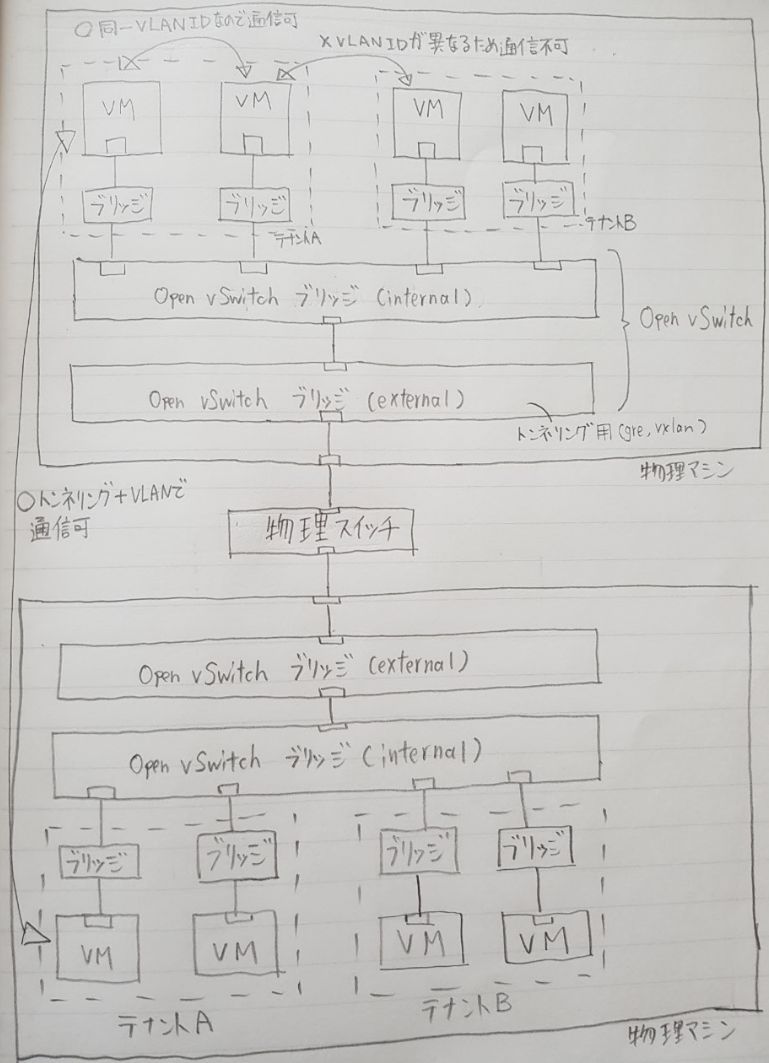 ○同一VLAN IDなので通信可
× VLAN IDが異なるため通信不可
VM VM VM VM
ブリッジ ブリッジ ブリッジ ブリッジ
テナントA テナントB
Open vSwitch ブリッジ (internal)
Open vSwitch
Open vSwitch ブリッジ (external)
トンネリング用(gre, vxlan)
物理マシン
○トンネリング+VLANで
通信可
物理スイッチ
Open vSwitch ブリッジ (external)
Open vSwitch ブリッジ (internal)
ブリッジ ブリッジ ブリッジ ブリッジ
VM VM VM VM
テナントA テナントB
物理マシン